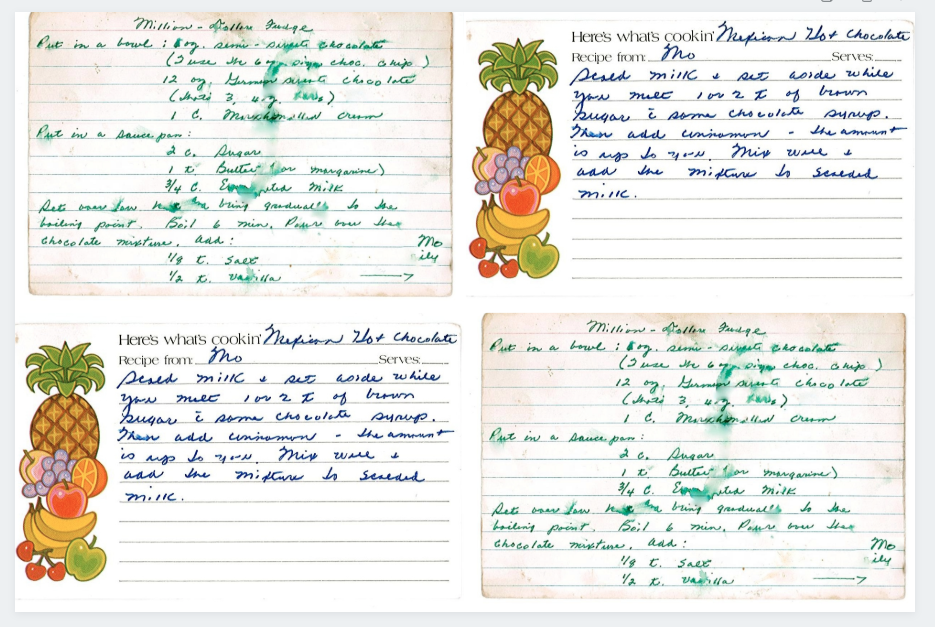 Million - Dollar Fudge
Put in a bowl: 6 oz. semi-sweet chocolate
(I use the 6 oz. size choc. chip)
12 oz. German sweet chocolate
(that's 3, 4 oz. bars)
1 C. Marshmallow cream
Put in a sauce pan:
2 c. Sugar
1 t. Butter (or margarine)
3/4 C. Milk
over low bring gradually to the
boiling point. Boil 6 min. Pour over the
chocolate mixture. Add:
Mo
ily
1/8 t. Salt
1/2 t. Vanilla
Here's what's cookin' Mexican Hot Chocolate
Recipe from: Mo Serves:
Scald milk & set aside while
you melt 1 or 2 T of brown
sugar c̄ some chocolate syrup.
Then add cinnamon - the amount
is up to you. Mix well &
add the mixture to scalded
milk.
Here's what's cookin' Mexican Hot Chocolate
Recipe from: Mo Serves:
Scald milk & set aside while
you melt 1 or 2 T of brown
sugar c̄ some chocolate syrup.
Then add cinnamon - the amount
is up to you. Mix well &
add the mixture to scalded
milk.
Million - Dollar Fudge
Put in a bowl: 6 oz. semi-sweet chocolate
(I use the 6 oz. size choc. chip)
12 oz. German sweet chocolate
(that's 3, 4 oz. bars)
1 C. Marshmallow cream
Put in a sauce pan:
2 c. Sugar
1 t. Butter (or margarine)
3/4 C. Milk
over low bring gradually to the
boiling point. Boil 6 min. Pour over the
chocolate mixture. Add:
Mo
ily
1/8 t. Salt
1/2 t. Vanilla